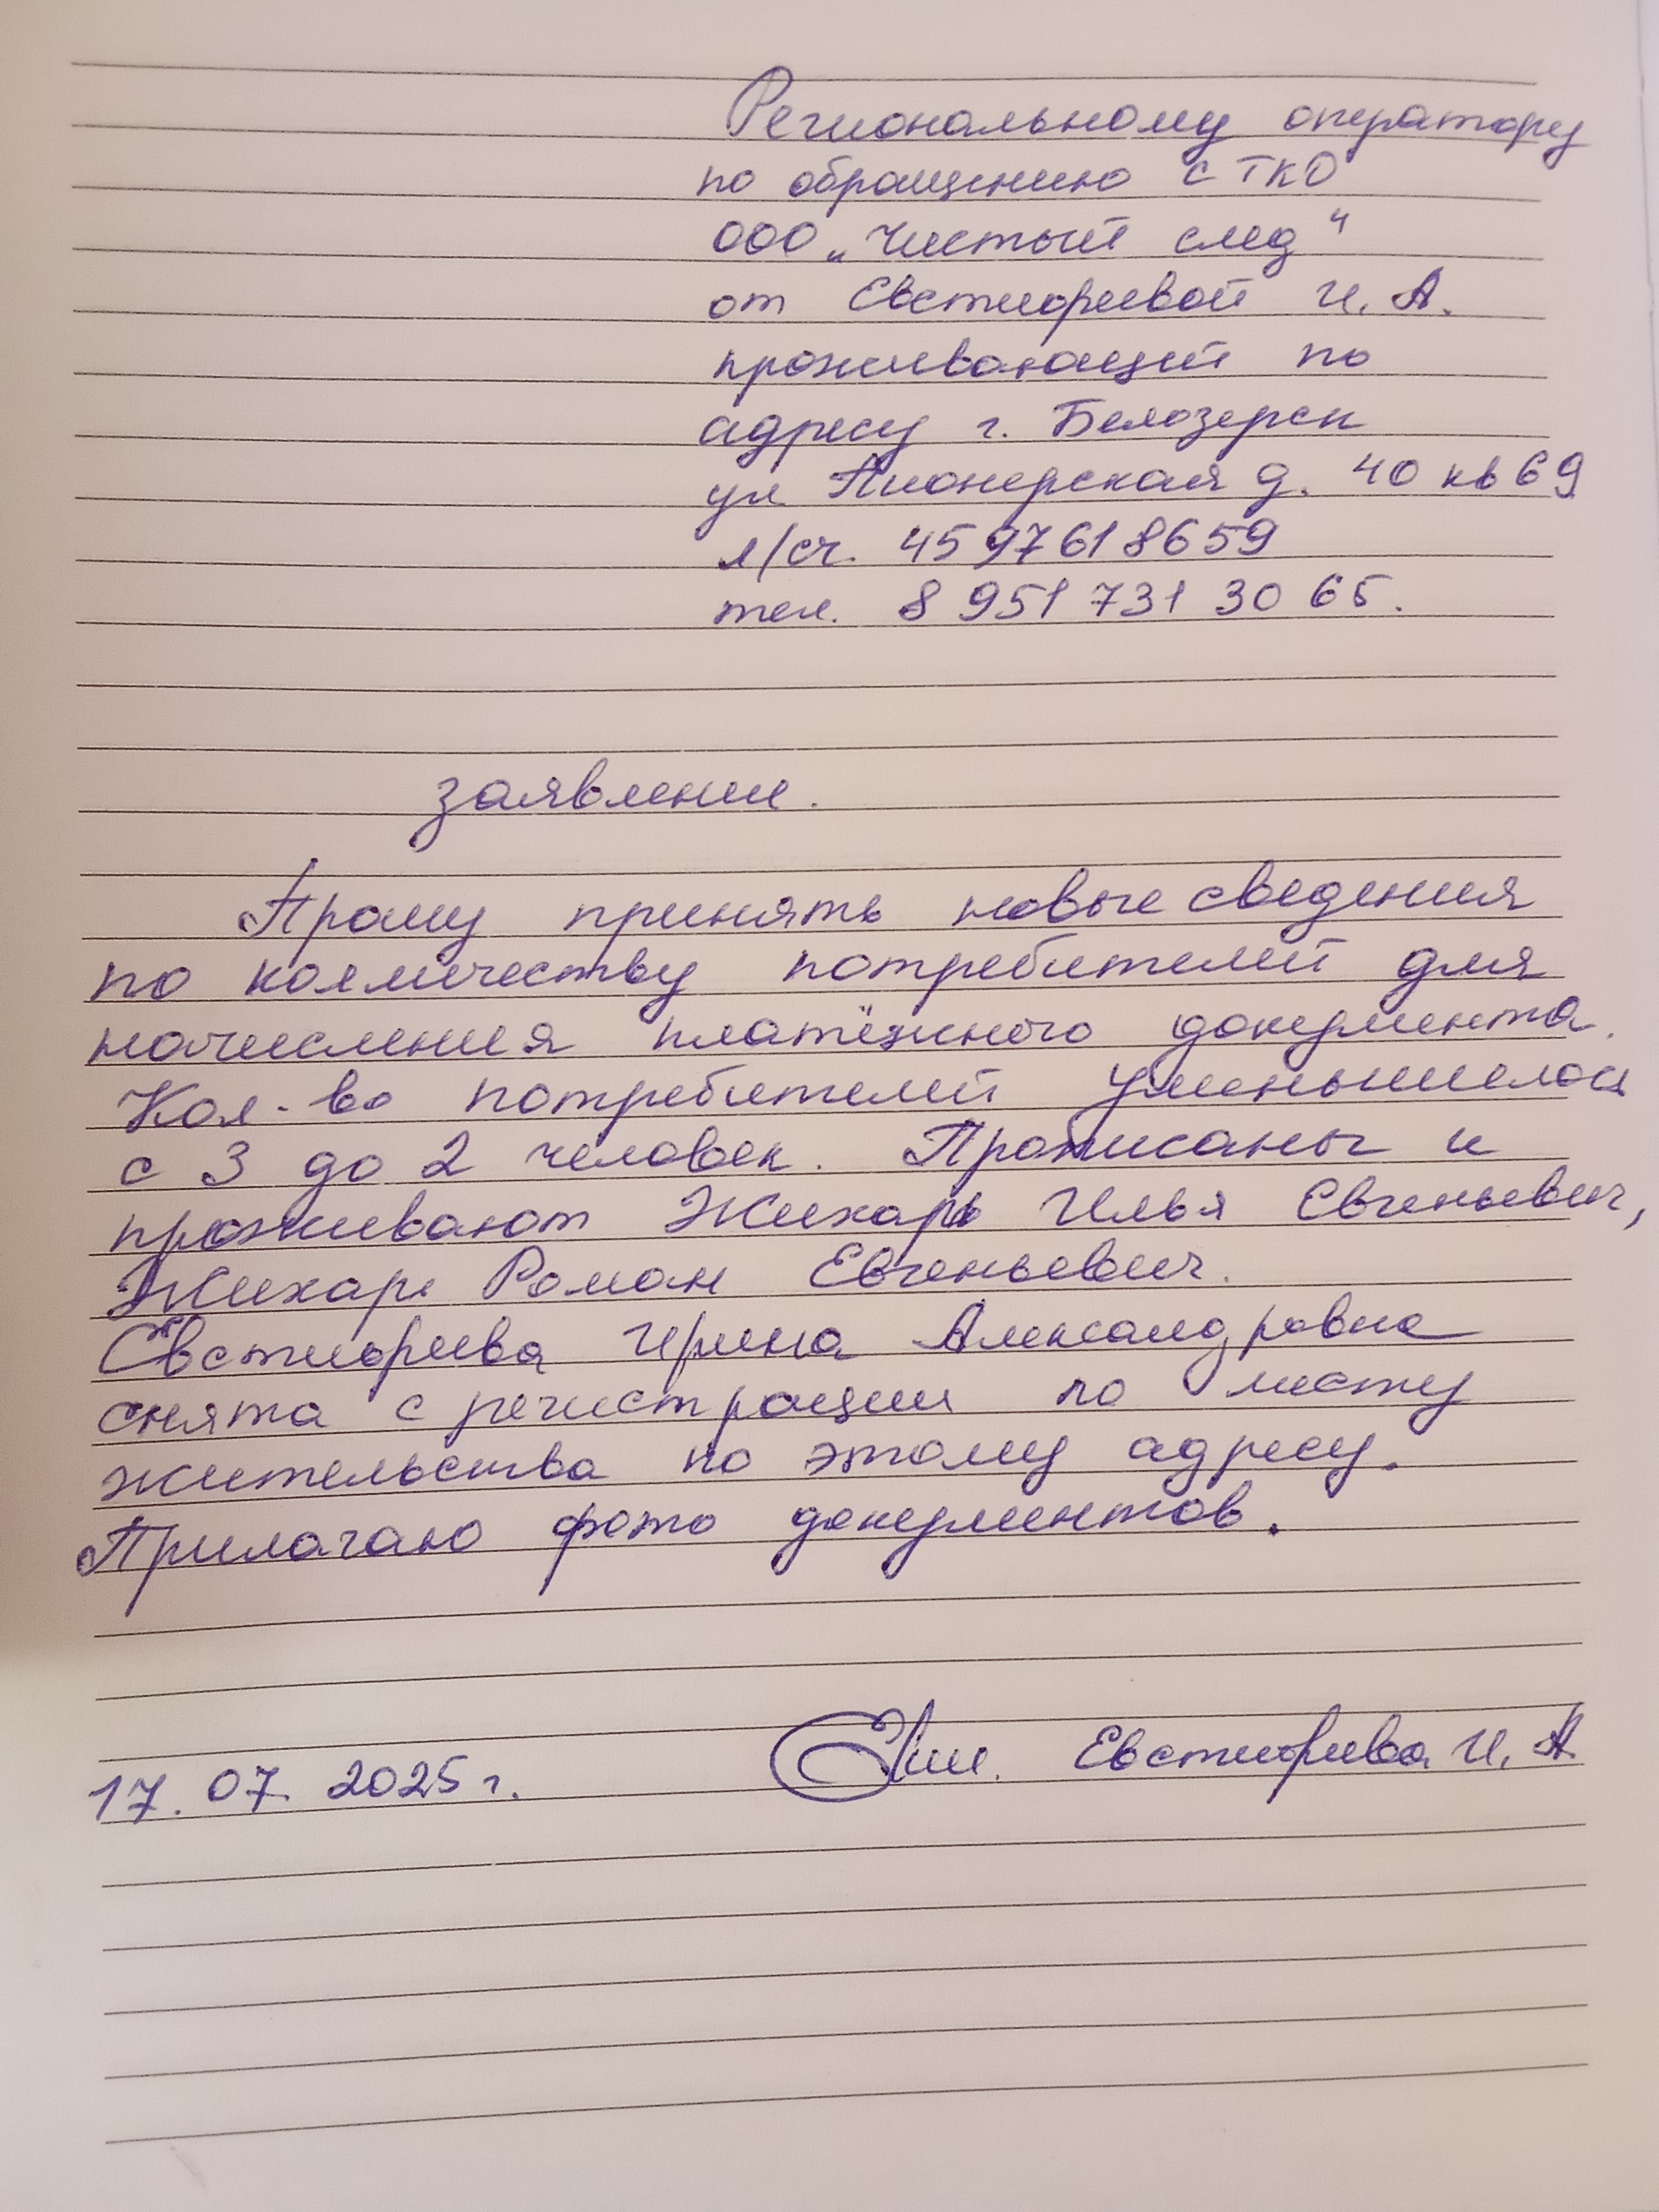 Региональному оператору
по обращению с ТКО
ООО „Чистый след“
от Евстифеевой И. А.
проживающей по
адресу г. Белозерск
ул Пионерская д. 40 кв 69
л/сч. 4597618659
тел. 8 951 731 30 65.
заявление.
Прошу принять новые сведения
по колличеству потребителей для
начисления платёжного документа.
Кол-во потребителей уменьшилось
с 3 до 2 человек. Прописаны и
проживают Жихарь Илья Евгеньевич,
Жихарь Роман Евгеньевич.
Евстифеева Ирина Александровна
снята с регистрации по месту
жительства по этому адресу.
Прилагаю фото документов.
17. 07. 2025 г. Евстифеева И. А